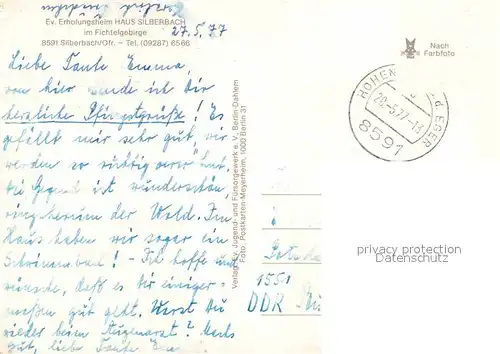 Ev. Erholungsheim HAUS SILBERBACH
im Fichtelgebirge
8591 Silberbach/Ofr. – Tel. (09287) 6566
27.5.77
Liebe Tante Emma,
von hier sende ich dir
herzliche Pfingstgrüße! Es
gefällt mir sehr gut, wir
werden so richtig verwöhnt,
die Gegend ist wunderschön,
ringsherum der Wald. Im
Haus haben wir sogar ein
Schwimmbad! – Ich hoffe und
wünsche, daß es dir einiger-
maßen gut geht. Warst du
wieder beim Augenarzt? Machs
gut, liebe Tante
Verlag: Ev. Jugend- und Fürsorgewerk e. V. Berlin-Dahlem
Foto: Postkarten Meyerheim, 1000 Berlin 31
Nach
Farbfoto
HOHEN
EGER
28.-5.77.-13
8591
1551
DDR
privacy protection
Datenschutz